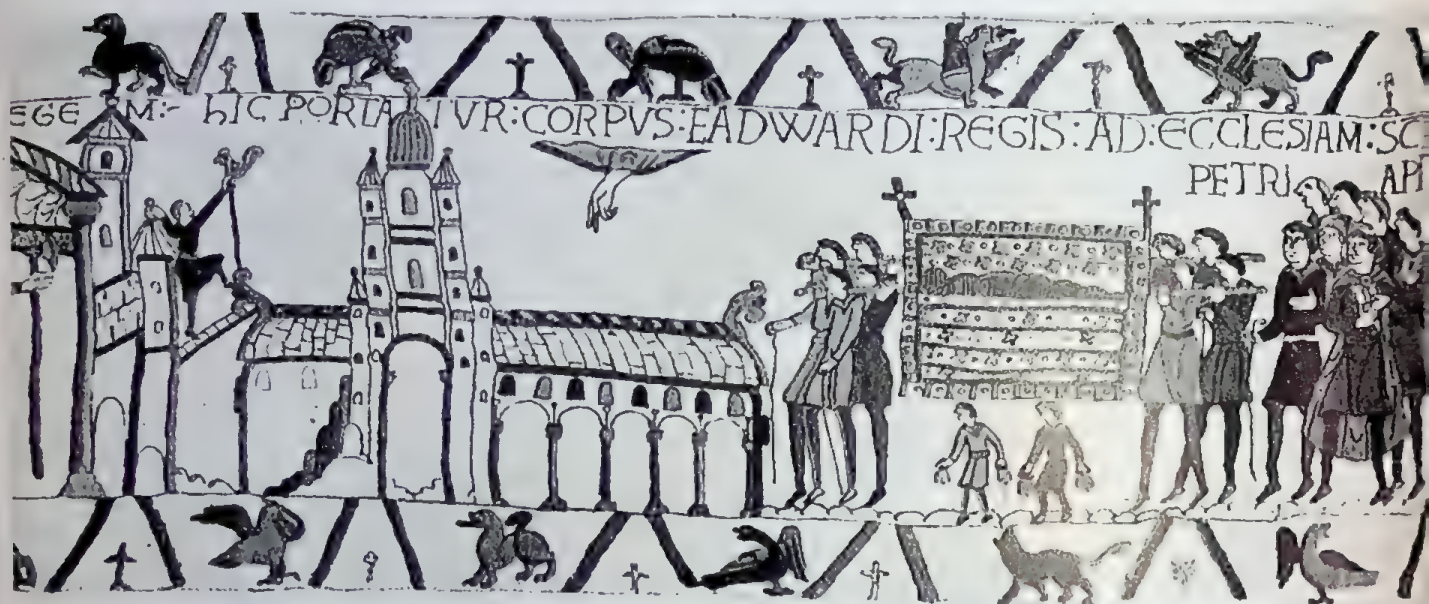 EGE M:· hIC PORTA TVR:CORPVS:EADWARDI:REGIS:AD:ECCLESIAM:SCI
PETRI APL